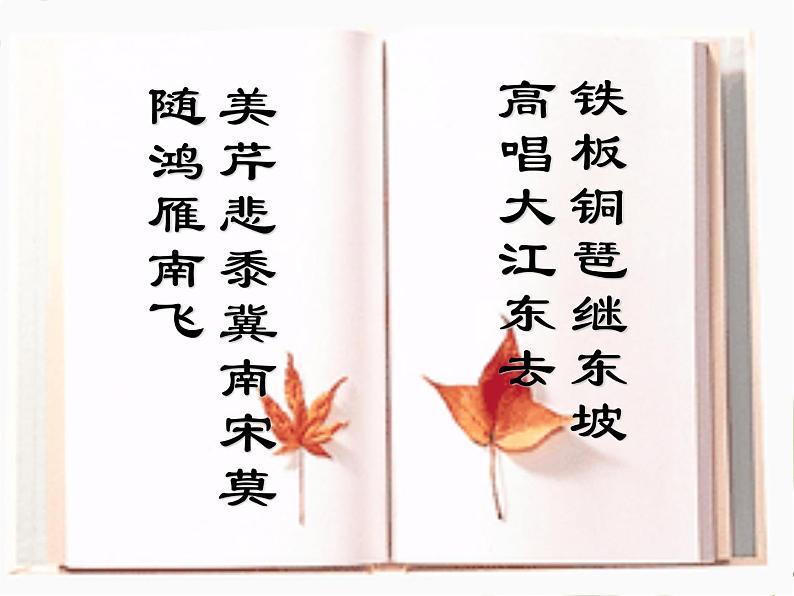 铁板铜琶继东坡
高唱大江东去
美芹悲黍冀南宋莫
随鸿雁南飞